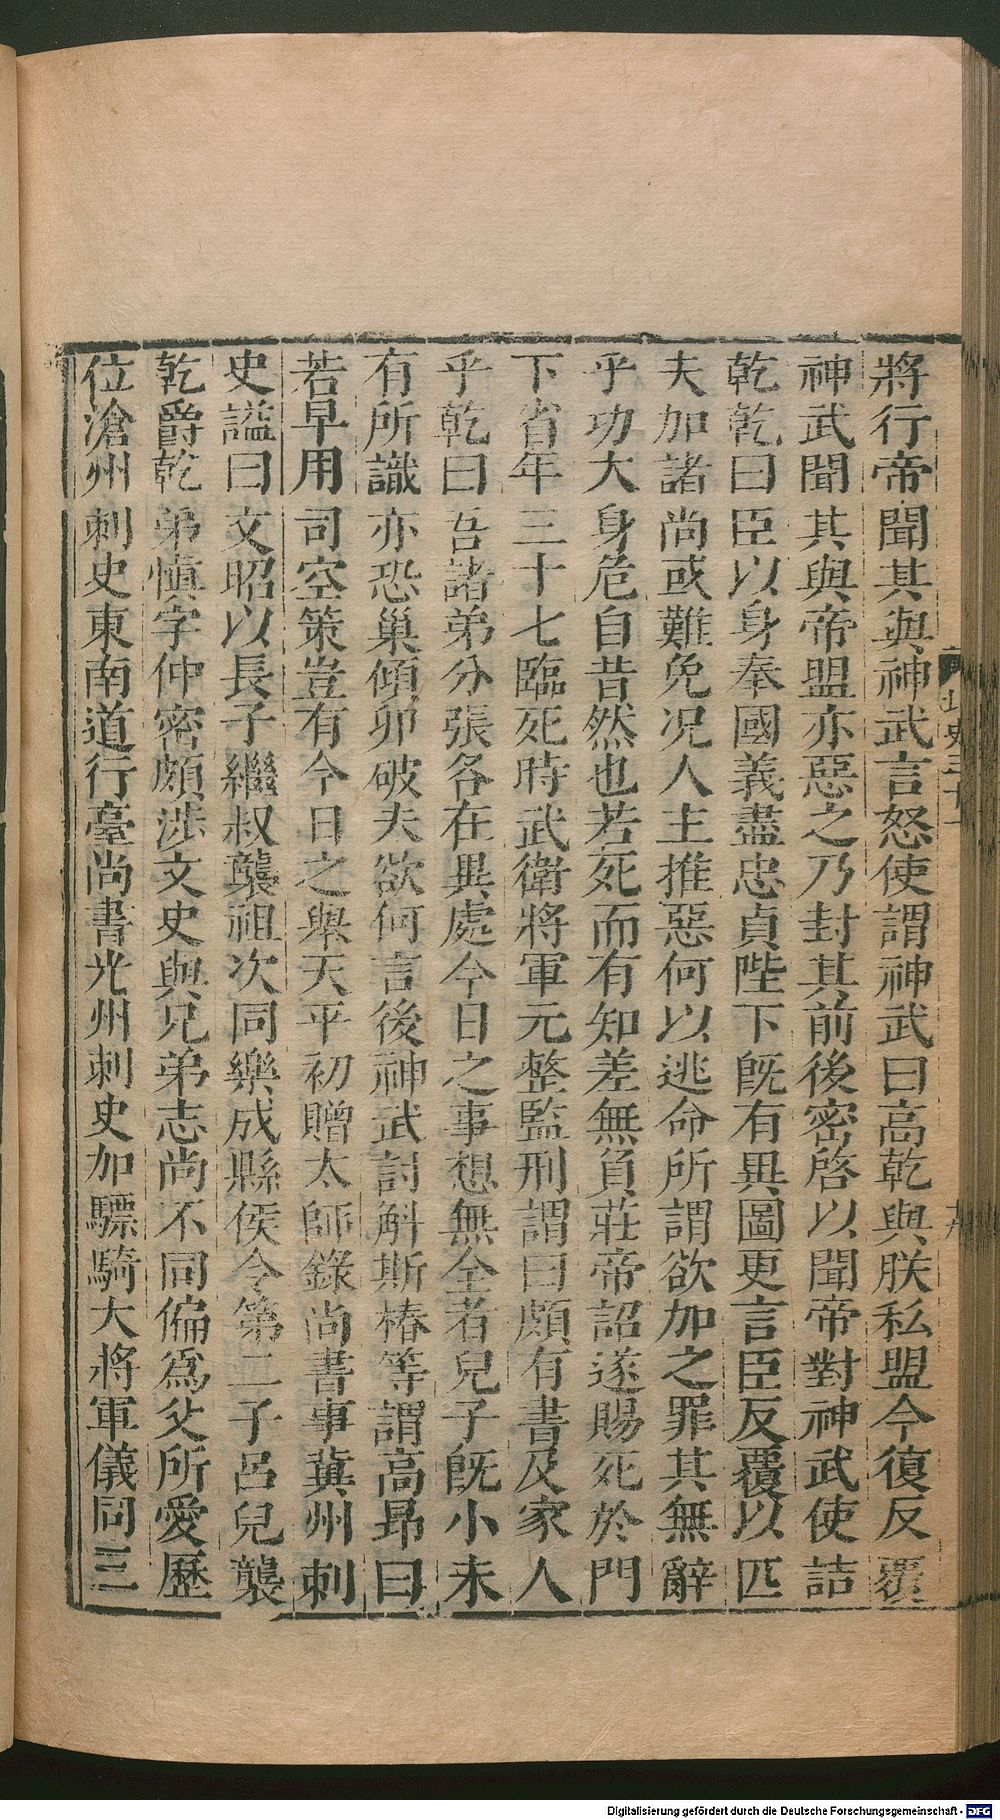 將行帝聞其與神武言怒使謂神武曰高乾與朕私盟今復反覆
神武聞其與帝盟亦惡之乃封其前後密啓以聞帝對神武使詰
乾乾曰臣以身奉國義盡忠貞陛下旣有異圖更言臣反覆以匹
夫加諸尚或難免况人主推惡何以逃命所謂欲加之罪其無辭
乎功大身危自昔然也若死而有知差無負莊帝詔遂賜死於門
下省年三十七臨死時武衛將軍元整監刑謂曰頗有書及家人
乎乾曰吾諸弟分張各在異處今日之事想無全者兒子旣小未
有所識亦恐巢傾卵破夫欲何言後神武討斛斯椿等謂高昂曰
若早用司空策豈有今日之舉天平初贈太師錄尚書事冀州刺
史謚曰文昭以長子繼叔襲祖次同樂成縣侯令第二子呂兒襲
乾爵乾弟慎字仲密頗涉文史與兄弟志尚不同偏爲父所愛歷
位滄州刺史東南道行臺尚書光州刺史加驃騎大將軍儀同三
北史三十一
十八
Digitalisierung gefördert durch die Deutsche Forschungsgemeinschaft - DFG